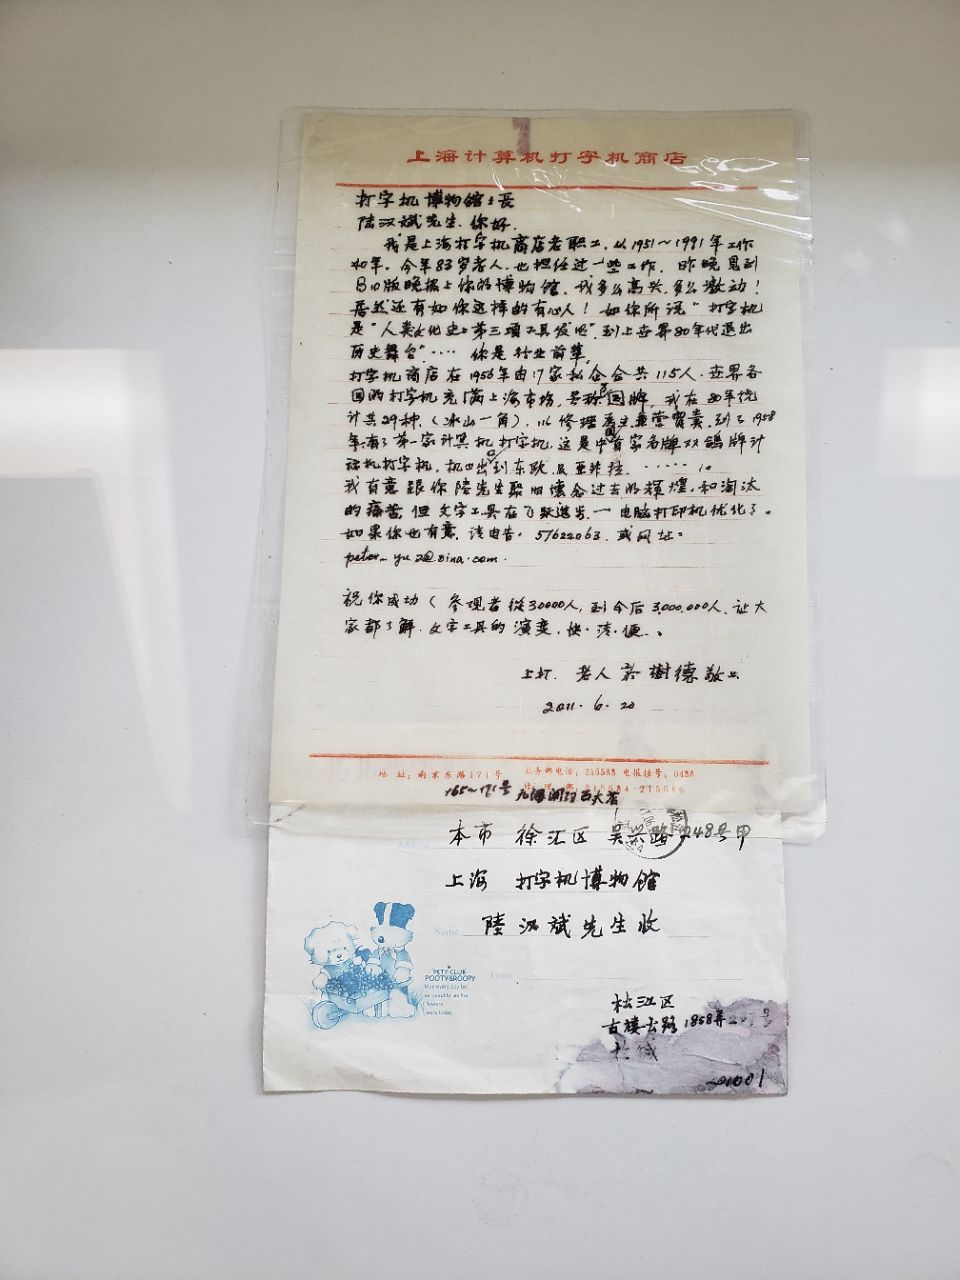 上海计算机打字机商店
打字机博物馆之长
陆汉斌先生、你好.
我是上海打字机商店老职工, 从1951～1991年工作
40年. 今年83岁老人. 也担任过一些工作. 昨晚見到
B10版晚报上你的博物馆. 我多么高兴. 多么激动!
居然还有如你这样的有心人! 如你所说 "打字机
是"人类文化史上第三項工具发明" 到上世界80年代退出
历史舞台" ···· 你是行业前辈,
打字机商店在1956年由17家私企合共115人. 世界各
国的打字机充满上海市场, 号称 国牌, 我在80年统
计共29种. (冰山一角). 以修理为主. 兼营買卖. 到了1958
年有了第一家计算机打字机. 这是中国首字名牌双鴿牌计
算机打字机. 出口到东欧及亚非拉. ······
我有意跟你陸先生聚旧懷念过去的輝煌, 和淘汰
的痛苦. 但文字工具在飞跃進步. 一电脑打印机优化了.
如果你也有意, 请电告: 57622063. 或网址:
peter_yu2@sina.com.
祝你成功 ( 参观者從30000人, 到今后3,000,000人. 让大
家都了解. 文字工具的演变. 快·清·便.
上打. 老人 樹德敬上
2011. 6. 20
地 址: 南京东路171号 业务部电话: 215583 电报挂号: 0486
215584·215586
165～171号
Address 本市 徐汇区 吴兴路248号甲
上海 打字机博物馆
Name 陸汉斌先生收
From
PETY CLUB
POOTY&ROOPY
May every day be
as beautiful as the
flowers
were today
松江区
古楼公路1858弄
松 城
201601